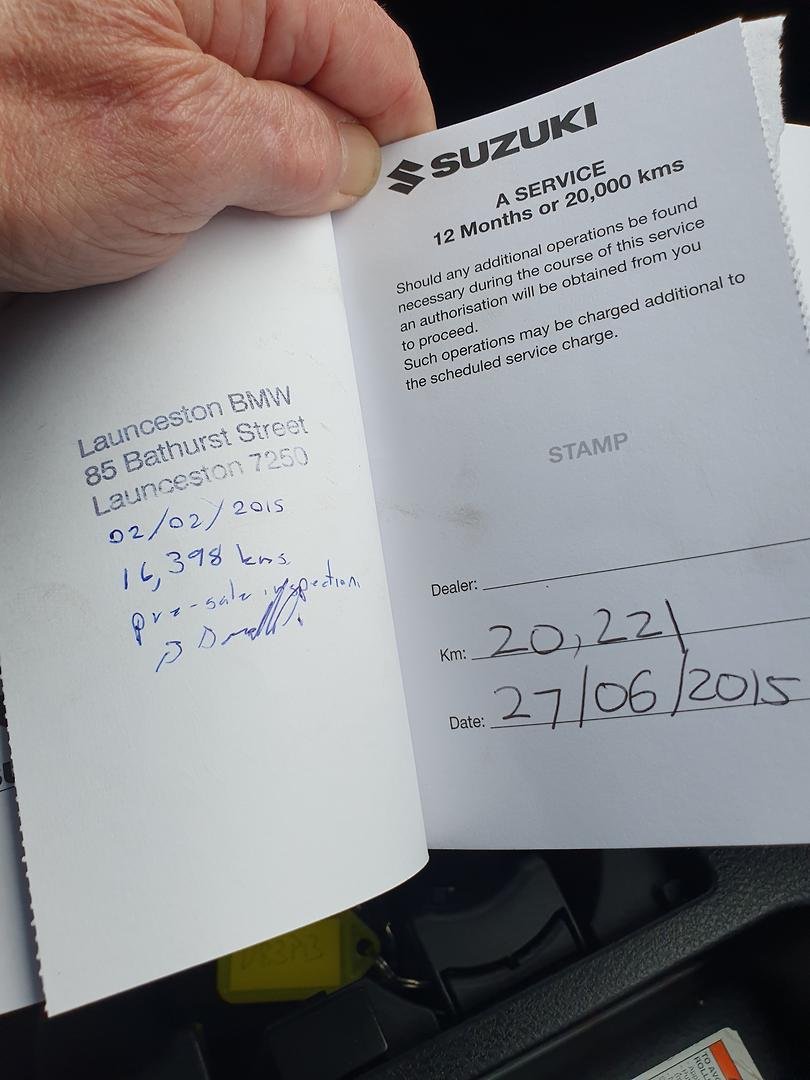 Launceston BMW
85 Bathurst Street
Launceston 7250
02/02/2015
16,398 kms
pre-sale inspection
SUZUKI
A SERVICE
12 Months or 20,000 kms
Should any additional operations be found
necessary during the course of this service
an authorisation will be obtained from you
to proceed.
Such operations may be charged additional to
the scheduled service charge.
STAMP
Dealer:
Km: 20,221
Date: 27/06/2015